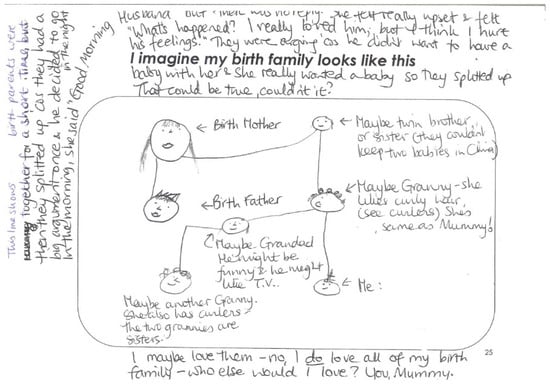 This line shows birth parents were together for a short time, but
then they splitted up cos they had a
big argument once & he decided to go
in the night
In the morning, she said "Good Morning
Husband" but there was no reply. She felt really upset & felt
"What's happened? I really loved him, but I think I hurt
his feelings." They were arging cos he didn't want to have a
I imagine my birth family looks like this
baby with her & she really wanted a baby so they splitted up
That could be true, couldn't it?
← Birth Mother
← Maybe twin brother,
or sister (they couldn't
keep two babies in China)
← Birth Father
← Maybe Granny - she
likes curly hair,
(see curlers) She's
same as Mummy!
Maybe Grandad
He might be
funny & he might
like T.V..
← Me:
Maybe another Granny.
She also has curlers -
The two grannies are
sisters.
25
I maybe love them - no, I do love all of my birth
family - who else would I love? You, Mummy.